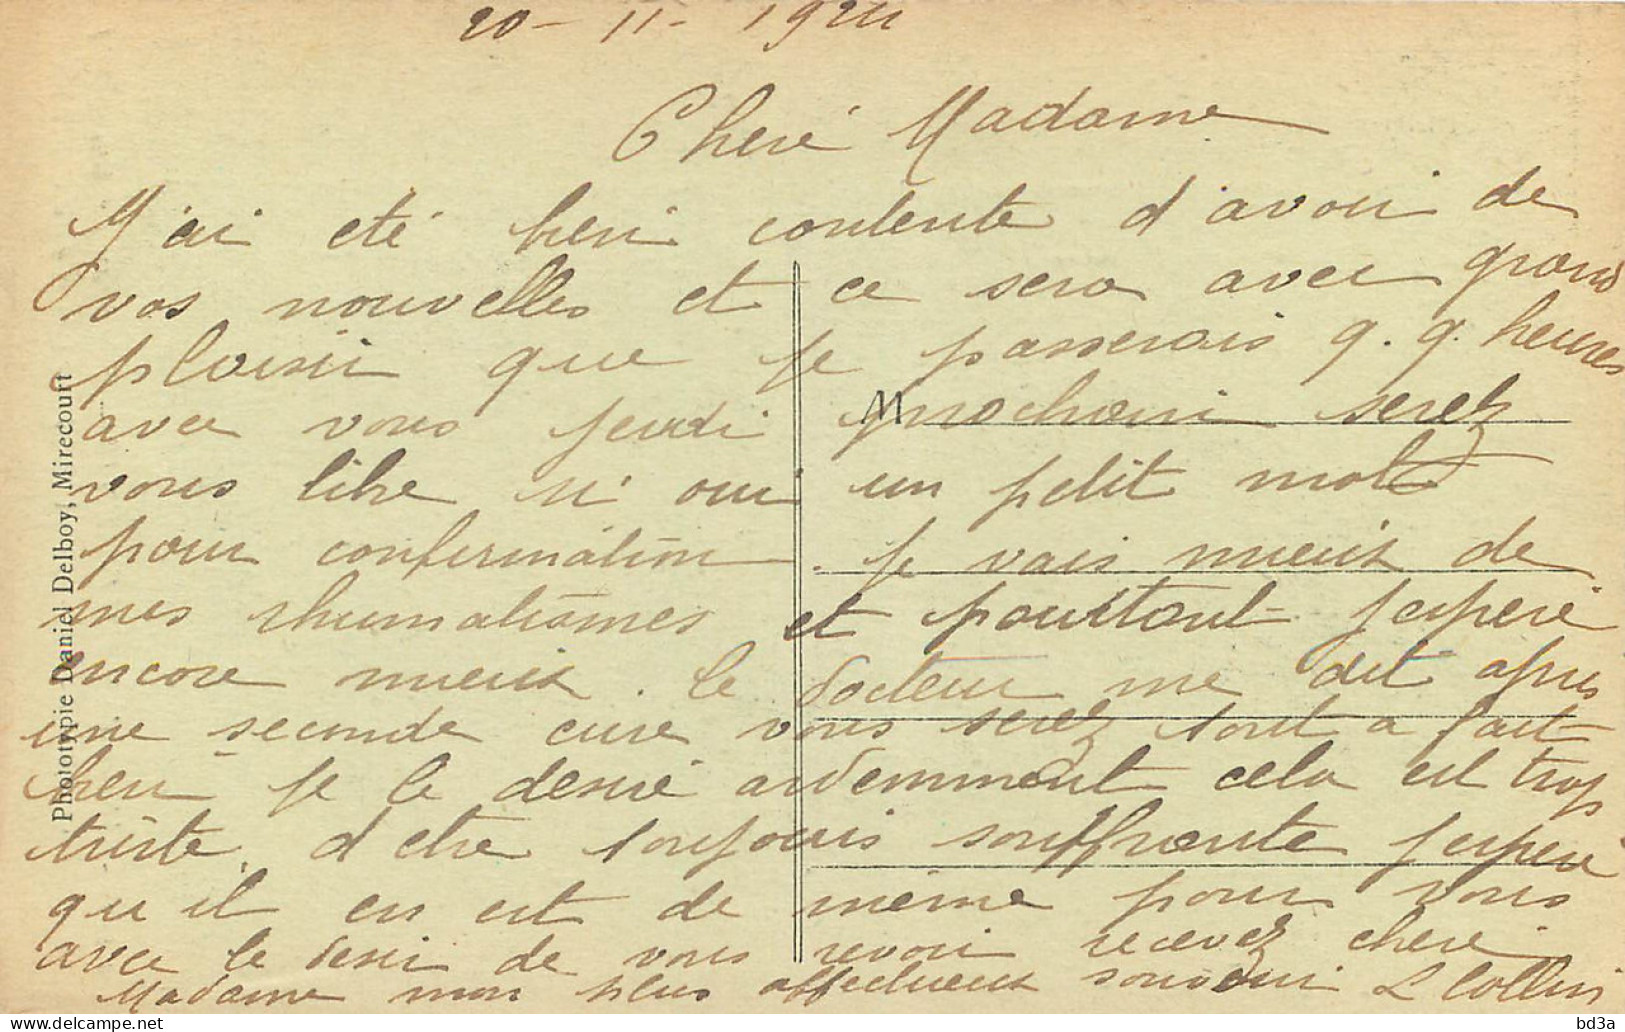 20 - 11 - 1924
Cheré Madame
J'ai eté bien contente d'avoir de
vos nouvelles et ce sera avec grand
plaisir que je passerais q. q. heures
avec vous jeudi prochain serez
vous libre si oui un petit mot
pour confirmation. Je vais mieux de
mes rhumatismes et pourtant j'esperé
encore mieux. le docteur me dit apres
une seconde cure vous serez tout a fait
bien je le desiré ardemment cela est trop
triste d'etre toujours souffrante j'esperé
qu'il en est de même pour vous
avec le desir de vous revoir recevez cheré
Madame mon plus affectueux souvenir L Collin
M
Phototypie Daniel Delboy, Mirecourt
bd3a